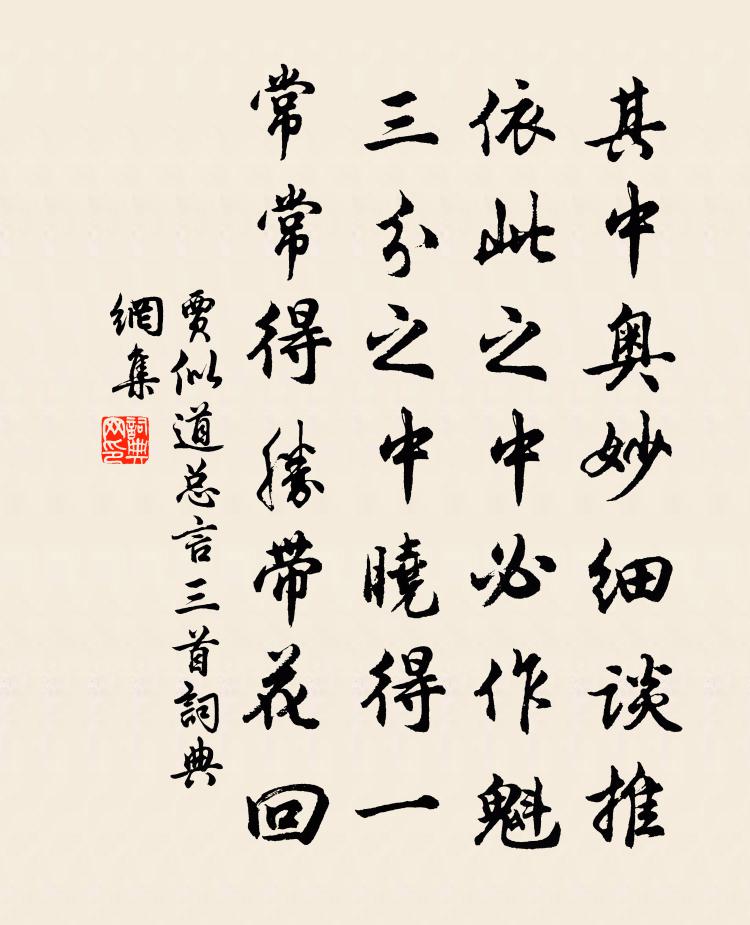 其中奥妙细谈推
依此之中必作魁
三分之中曉得一
常常得勝带花回
賈似道总言三首詞典
網集
詞典
网印